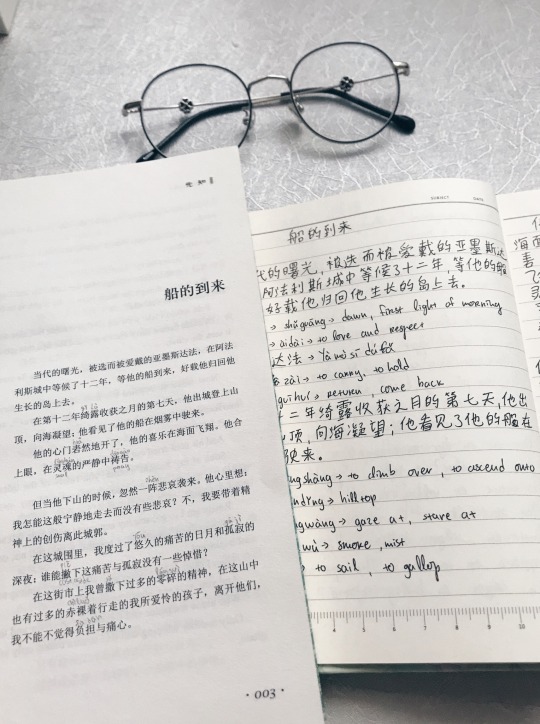 船的到来
当代的曙光，被选而被爱戴的亚墨斯达法，在阿法
利斯城中等候了十二年，等他的船到来，好载他归回他
生长的岛上去。
在第十二年绮露收获之月的第七天，他出城登上山
顶，向海凝望；他看见了他的船在烟雾中驶来。
他的心门砉然地开了，他的喜乐在海面飞翔。他合
上眼，在灵魂的严静中祷告。
但当他下山的时候，忽然一阵悲哀袭来。他心里想：
我怎能这般宁静地走去而没有些悲哀？不，我要带着精
神上的创伤离此城郭。
在这城围里，我度过了悠久的痛苦的日月和孤寂的
深夜；谁能撇下这痛苦与孤寂没有一些悼惜？
在这街市上我曾撒下过多的零碎的精神，在这山中
也有过多的赤裸着行走的我所爱怜的孩子，离开他们，
我不能不觉得负担与痛心。
· 003 ·
SUBJECT DATE
船的到来
代的曙光，被选而被爱戴的亚墨斯达
阿法利斯城中等候了十二年，等他的船
好载他归回他生长的岛上去。
→ shǔguāng → dawn, first light of morning
→ àidài → to love and respect
达法 → Yà mò sī dá fǎ
zài → to carry, to hold
guīhuí → return, come back
二年绮露收获之月的第七天，他出
顶，向海凝望；他看见了他的船在
驶来。
→ to climb over, to ascend onto
→ hilltop
→ gaze at, stare at
wù → smoke, mist
→ to sail, to gallop
4 5 6 7 8 9 10